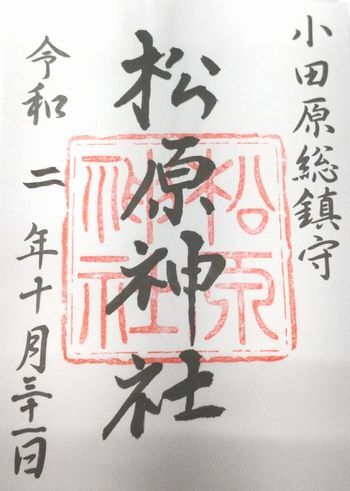 小田原総鎮守
松原神社
松原
神社
令和二年十月三十一日